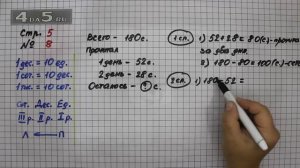 4DA5.RU
Стр. 5
№ 8
1 дес. = 10 ед.
1 сот. = 10 дес.
1 тыс. = 10 сот.
Сот. Дес. Ед.
III р. II р. I р.
Л П
Всего – 180 с.
Прочитал
1 день – 52 с.
2 день – 28 с.
Осталось – ? с.
1 сп. 1) 52+28=80(с)-прочитал
за два дня.
2) 180-80=100(с)-ост
2 сп. 1) 180-52=